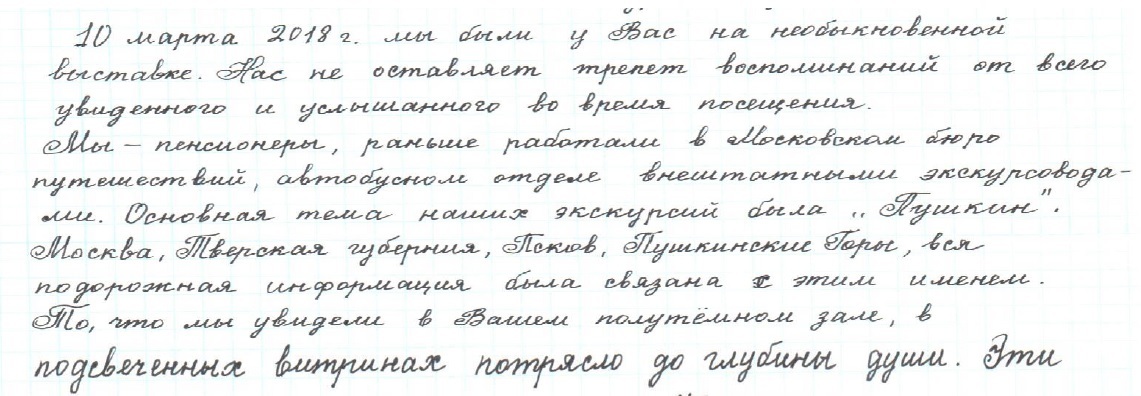 10 марта 2018 г. мы были у Вас на необыкновенной
выставке. Нас не оставляет трепет воспоминаний от всего
увиденного и услышанного во время посещения.
Мы – пенсионеры, раньше работали в Московском бюро
путешествий, автобусном отделе внештатными экскурсовода-
ми. Основная тема наших экскурсий была „Пушкин".
Москва, Тверская губерния, Псков, Пушкинские Горы, вся
подорожная информация была связана с этим именем.
То, что мы увидели в Вашем полутёмном зале, в
подсвеченных витринах потрясло до глубины души. Эти